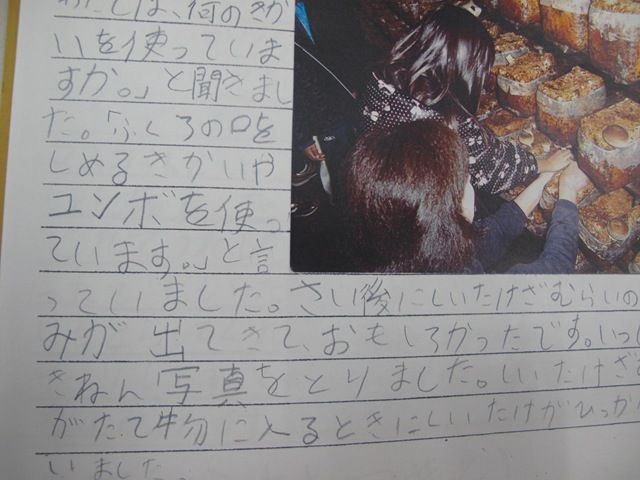 わたしは、何のきか
いを使っていま
すか。」と聞きまし
た。「ふくろの口を
しめるきかいや
ユンボを使っ
ています。」と言
っていました。さい後にしいたけざむらいの
みが出てきて、おもしろかったです。いっし
きねん写真をとりました。しいたけざむ
がたて物に入るときにしいたけがひっか
いました。